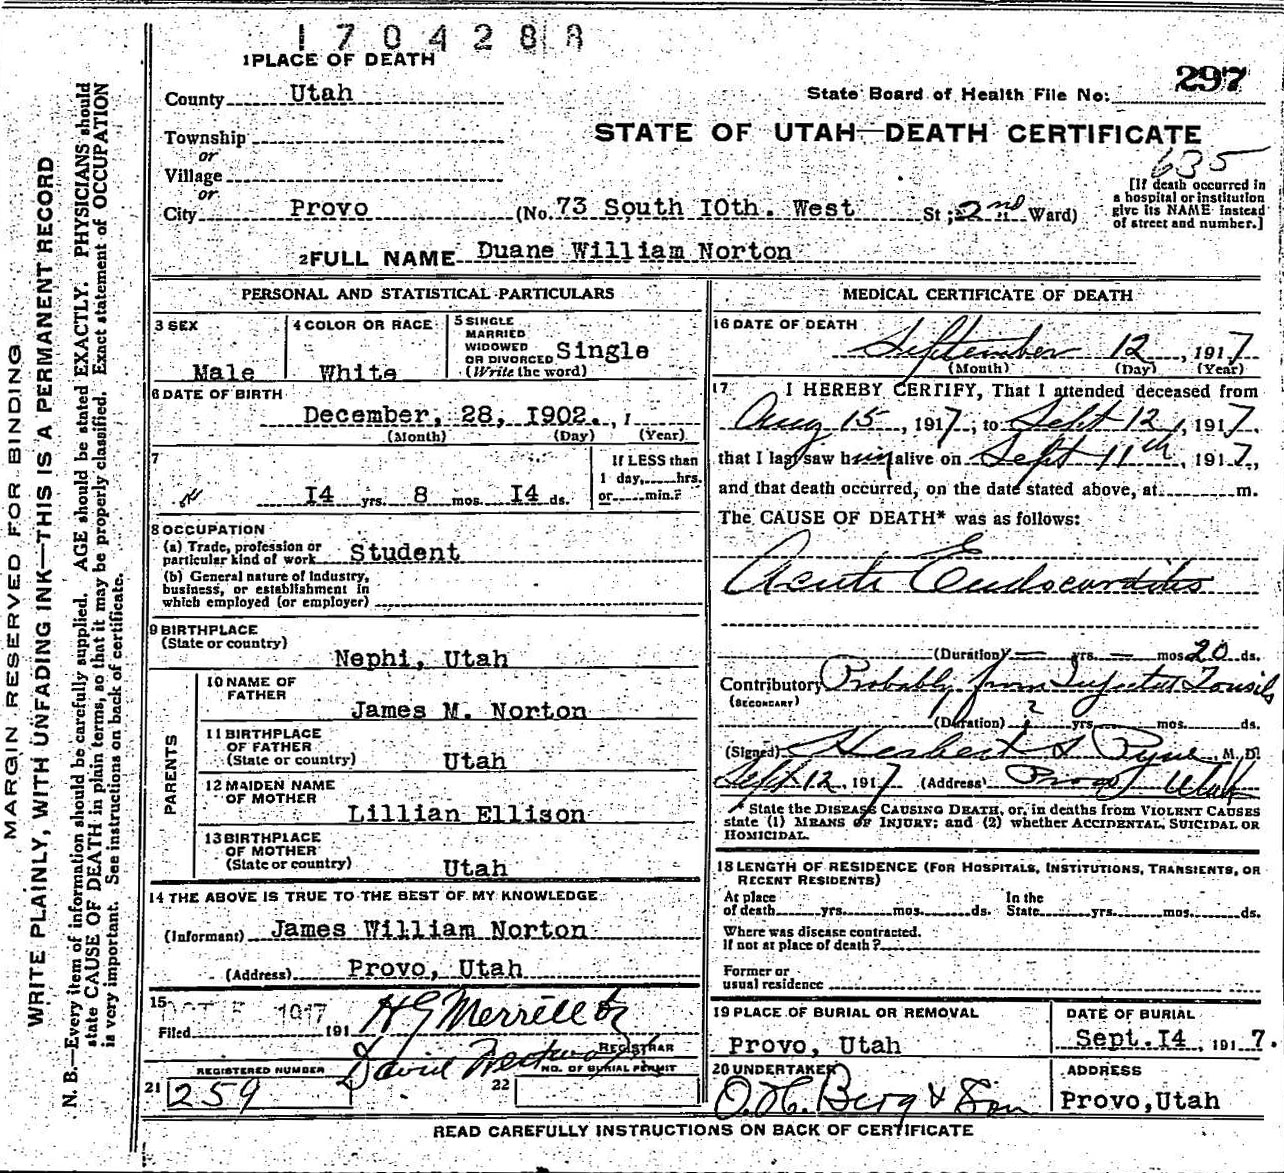 1704288
1 PLACE OF DEATH
297
County Utah
State Board of Health File No.
Township
or
STATE OF UTAH—DEATH CERTIFICATE
635
Village
or
City Provo (No. 73 South 10th. West St; 2nd Ward)
[If death occurred in
a hospital or institution
give its NAME instead
of street and number.]
2 FULL NAME Duane William Norton
PERSONAL AND STATISTICAL PARTICULARS
3 SEX
Male
4 COLOR OR RACE
White
5 SINGLE
MARRIED
WIDOWED
OR DIVORCED Single
(Write the word)
6 DATE OF BIRTH
December, 28, 1902.
(Month) (Day) (Year)
7
14 yrs. 8 mos. 14 ds.
If LESS than
1 day, hrs.
or min.?
8 OCCUPATION
(a) Trade, profession or
particular kind of work Student
(b) General nature of industry,
business, or establishment in
which employed (or employer)
9 BIRTHPLACE
(State or country)
Nephi, Utah
PARENTS
10 NAME OF
FATHER
James M. Norton
11 BIRTHPLACE
OF FATHER
(State or country) Utah
12 MAIDEN NAME
OF MOTHER
Lillian Ellison
13 BIRTHPLACE
OF MOTHER
(State or country) Utah
14 THE ABOVE IS TRUE TO THE BEST OF MY KNOWLEDGE
(Informant) James William Norton
(Address) Provo, Utah
15
OCT 1917
Filed 191 H G Merrill
REGISTRAR
David
REGISTERED NUMBER
NO. OF BURIAL PERMIT
21 259
22
MEDICAL CERTIFICATE OF DEATH
16 DATE OF DEATH
September 12, 1917
(Month) (Day) (Year)
17 I HEREBY CERTIFY, That I attended deceased from
Aug 15, 1917, to Sept 12, 1917.
that I last saw him alive on Sept 11th, 1917,
and that death occurred, on the date stated above, at m.
The CAUSE OF DEATH* was as follows:
Acute Endocarditis
(Duration) — yrs. — mos. 20 ds.
Contributory Probably from Infected Tonsils
(SECONDARY)
(Duration) ? yrs. mos. ds.
(Signed) Herbert S Pyne, M. D.
Sept 12, 1917 (Address) Provo, Utah
* State the DISEASE CAUSING DEATH, or, in deaths from VIOLENT CAUSES
state (1) MEANS OF INJURY; and (2) whether ACCIDENTAL, SUICIDAL OR
HOMICIDAL.
18 LENGTH OF RESIDENCE (FOR HOSPITALS, INSTITUTIONS, TRANSIENTS, OR
RECENT RESIDENTS)
At place
of death yrs. mos. ds.
In the
State yrs. mos. ds.
Where was disease contracted.
If not at place of death?
Former or
usual residence
19 PLACE OF BURIAL OR REMOVAL
Provo, Utah
DATE OF BURIAL
Sept. 14, 1917.
20 UNDERTAKER
O. H. Berg & Son
ADDRESS
Provo, Utah
READ CAREFULLY INSTRUCTIONS ON BACK OF CERTIFICATE
MARGIN RESERVED FOR BINDING
WRITE PLAINLY, WITH UNFADING INK—THIS IS A PERMANENT RECORD
N. B.—Every item of information should be carefully supplied. AGE should be stated EXACTLY. PHYSICIANS should
state CAUSE OF DEATH in plain terms, so that it may be properly classified. Exact statement of OCCUPATION
is very important. See instructions on back of certificate.